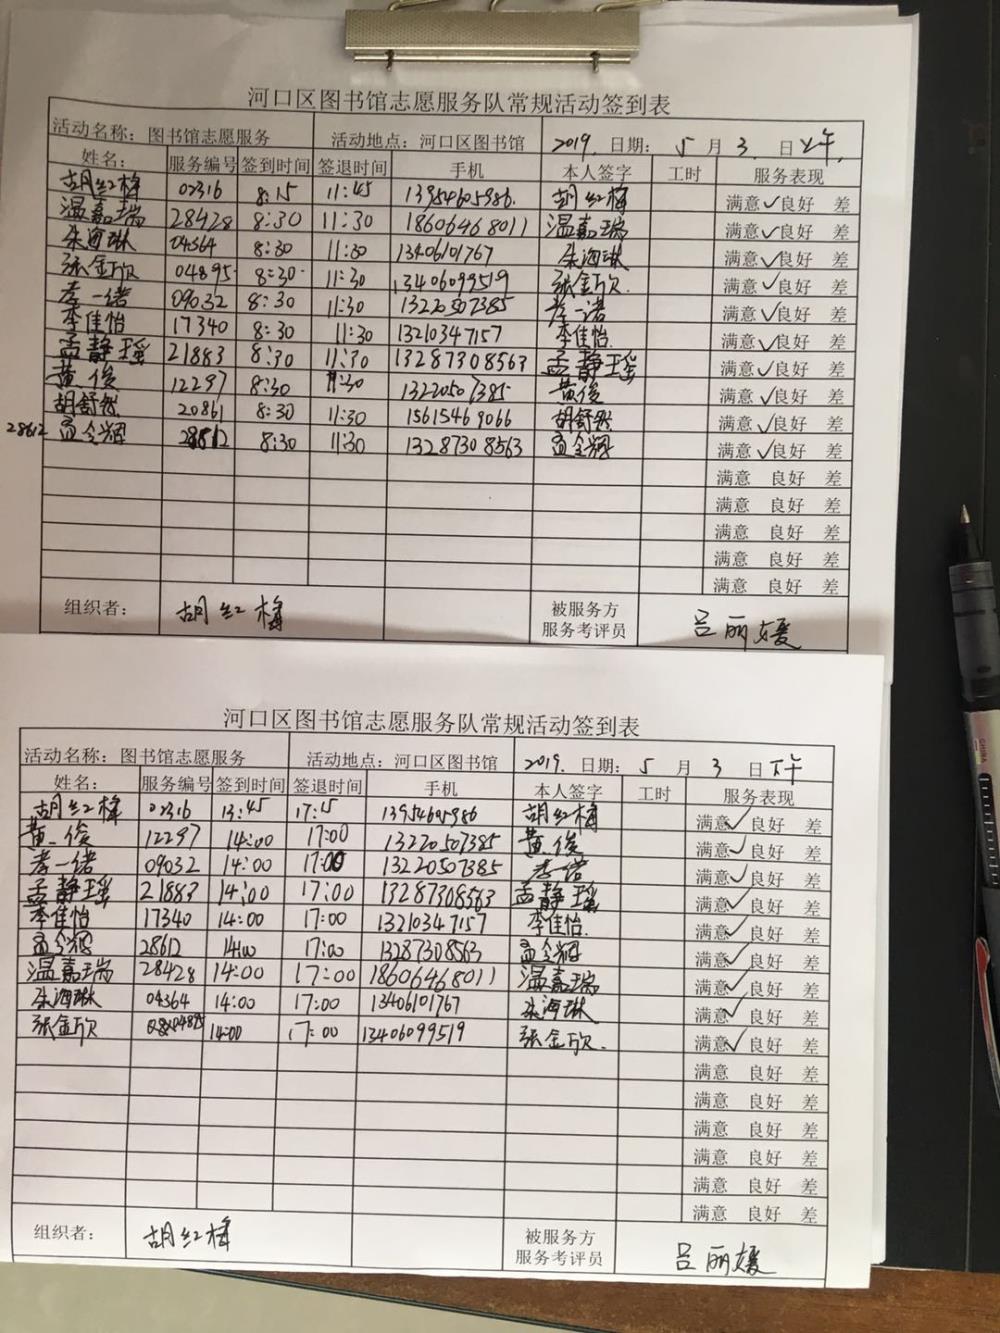 河口区图书馆志愿服务队常规活动签到表
活动名称：图书馆志愿服务 活动地点：河口区图书馆 2019. 日期： 5 月 3. 日 上午.
姓名： 服务编号 签到时间 签退时间 手机 本人签字 工时 服务表现
胡红梅 02316 8:15 11:45 13954605986. 胡红梅 满意✓良好 差
温嘉瑞 28428 8:30 11:30 18606468011 温嘉瑞 满意✓良好 差
朱海琳 04364 8:30 11:30 13406101767 朱海琳 满意✓良好 差
张金欣 04895 8:30 11:30 13406099519 张金欣. 满意✓良好 差
孝一诺 09032 8:30 11:30 13220507385 孝一诺 满意✓良好 差
李佳怡 17340 8:30 11:30 13210347157 李佳怡 满意✓良好 差
孟静瑶 21883 8:30 11:30 13287308563 孟静瑶 满意✓良好 差
黄俊 12297 8:30 11:30 13220507385 黄俊 满意✓良好 差
胡舒然 20861 8:30 11:30 15615469066 胡舒然 满意✓良好 差
28612 孟令辉 28612 8:30 11:30 13287308563 孟令辉 满意✓良好 差
满意 良好 差
满意 良好 差
满意 良好 差
满意 良好 差
满意 良好 差
组织者： 胡红梅 被服务方 吕丽媛
服务考评员
河口区图书馆志愿服务队常规活动签到表
活动名称：图书馆志愿服务 活动地点：河口区图书馆 2019. 日期： 5 月 3 日 下午
姓名： 服务编号 签到时间 签退时间 手机 本人签字 工时 服务表现
胡红梅 02316 13:45 17:15 13954605986 胡红梅 满意✓良好 差
黄俊 12297 14:00 17:00 13220507385 黄俊 满意✓良好 差
孝一诺 09032 14:00 17:00 13220507385 满意✓良好 差
孟静瑶 21883 14:00 17:00 13287308563 孟静瑶 满意✓良好 差
李佳怡 17340 14:00 17:00 13210347157 李佳怡. 满意✓良好 差
孟令辉 28612 14:00 17:00 13287308563 孟令辉 满意✓良好 差
温嘉瑞 28428 14:00 17:00 18606468011 温嘉瑞 满意✓良好 差
朱海琳 04364 14:00 17:00 13406101767 朱海琳 满意✓良好 差
张金欣 04895 14:00 17:00 13406099519 张金欣. 满意✓良好 差
满意 良好 差
满意 良好 差
满意 良好 差
满意 良好 差
满意 良好 差
满意 良好 差
组织者： 胡红梅 被服务方 吕丽媛
服务考评员